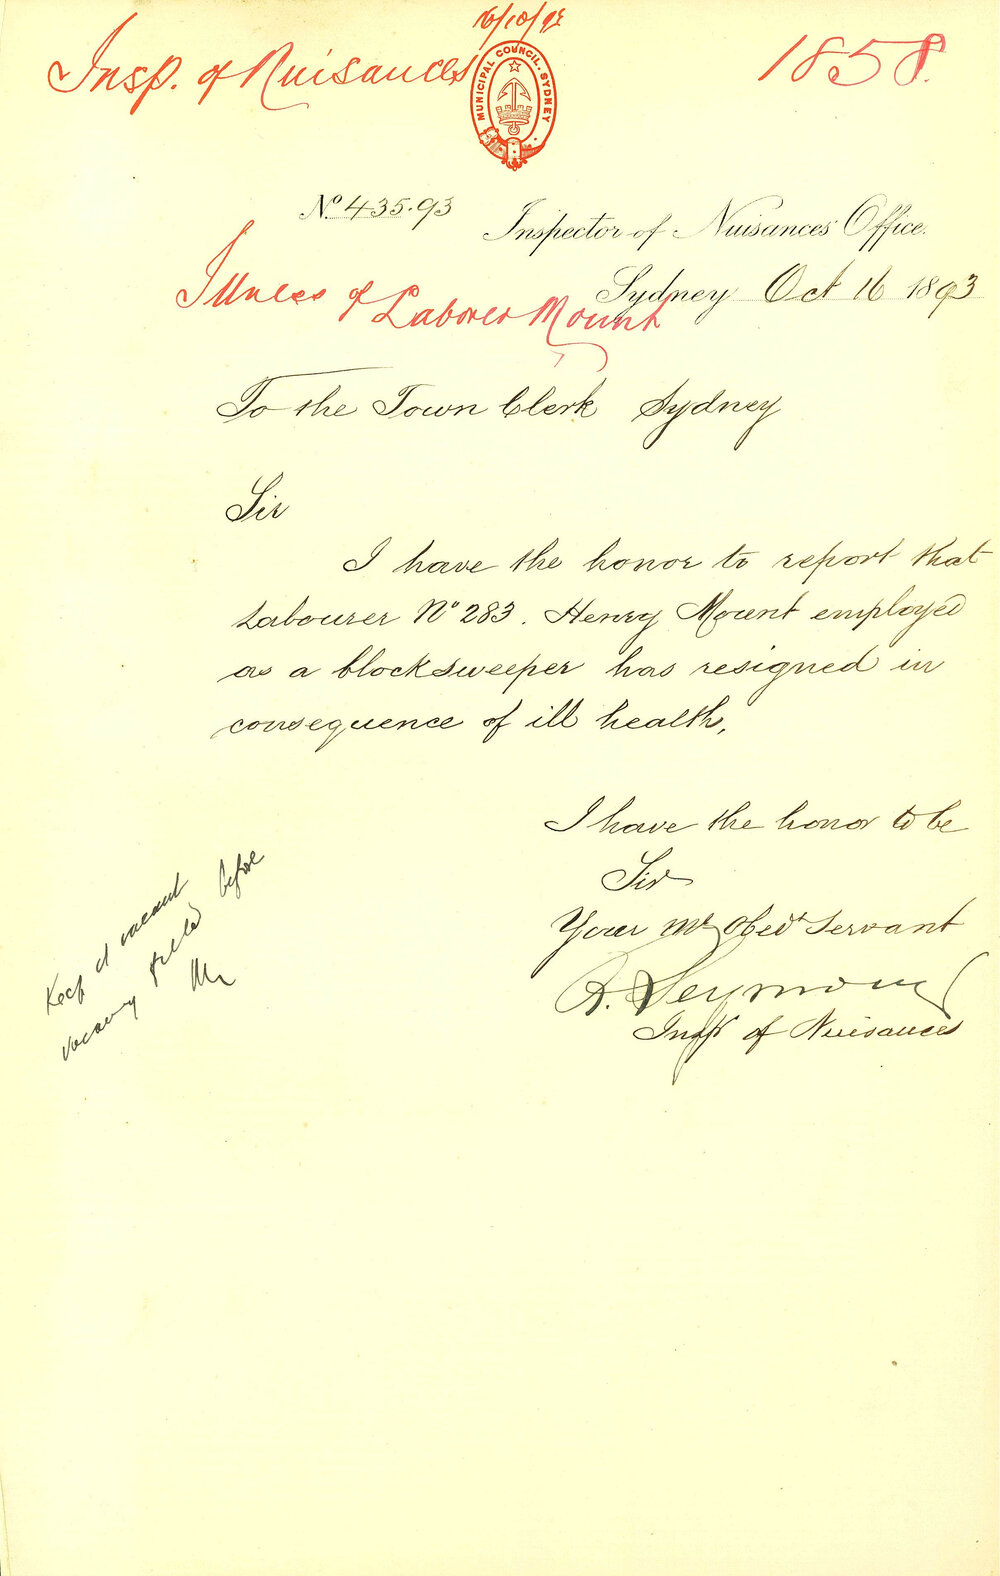 16/10/93
Insp. of Nuisances
1858.
MUNICIPAL COUNCIL. SYDNEY
No. 435.93
Inspector of Nuisances' Office.
Sydney Oct 16 1893
Illness of Laborer Mount
To the Town Clerk Sydney
Sir
I have the honor to report that
Labourer No 283. Henry Mount employed
as a blocksweeper has resigned in
consequence of ill health,
I have the honor to be
Sir
Your Mt Obedt Servant
R. Seymour
Insp of Nuisances
Keep it vacant
vacancy filled before